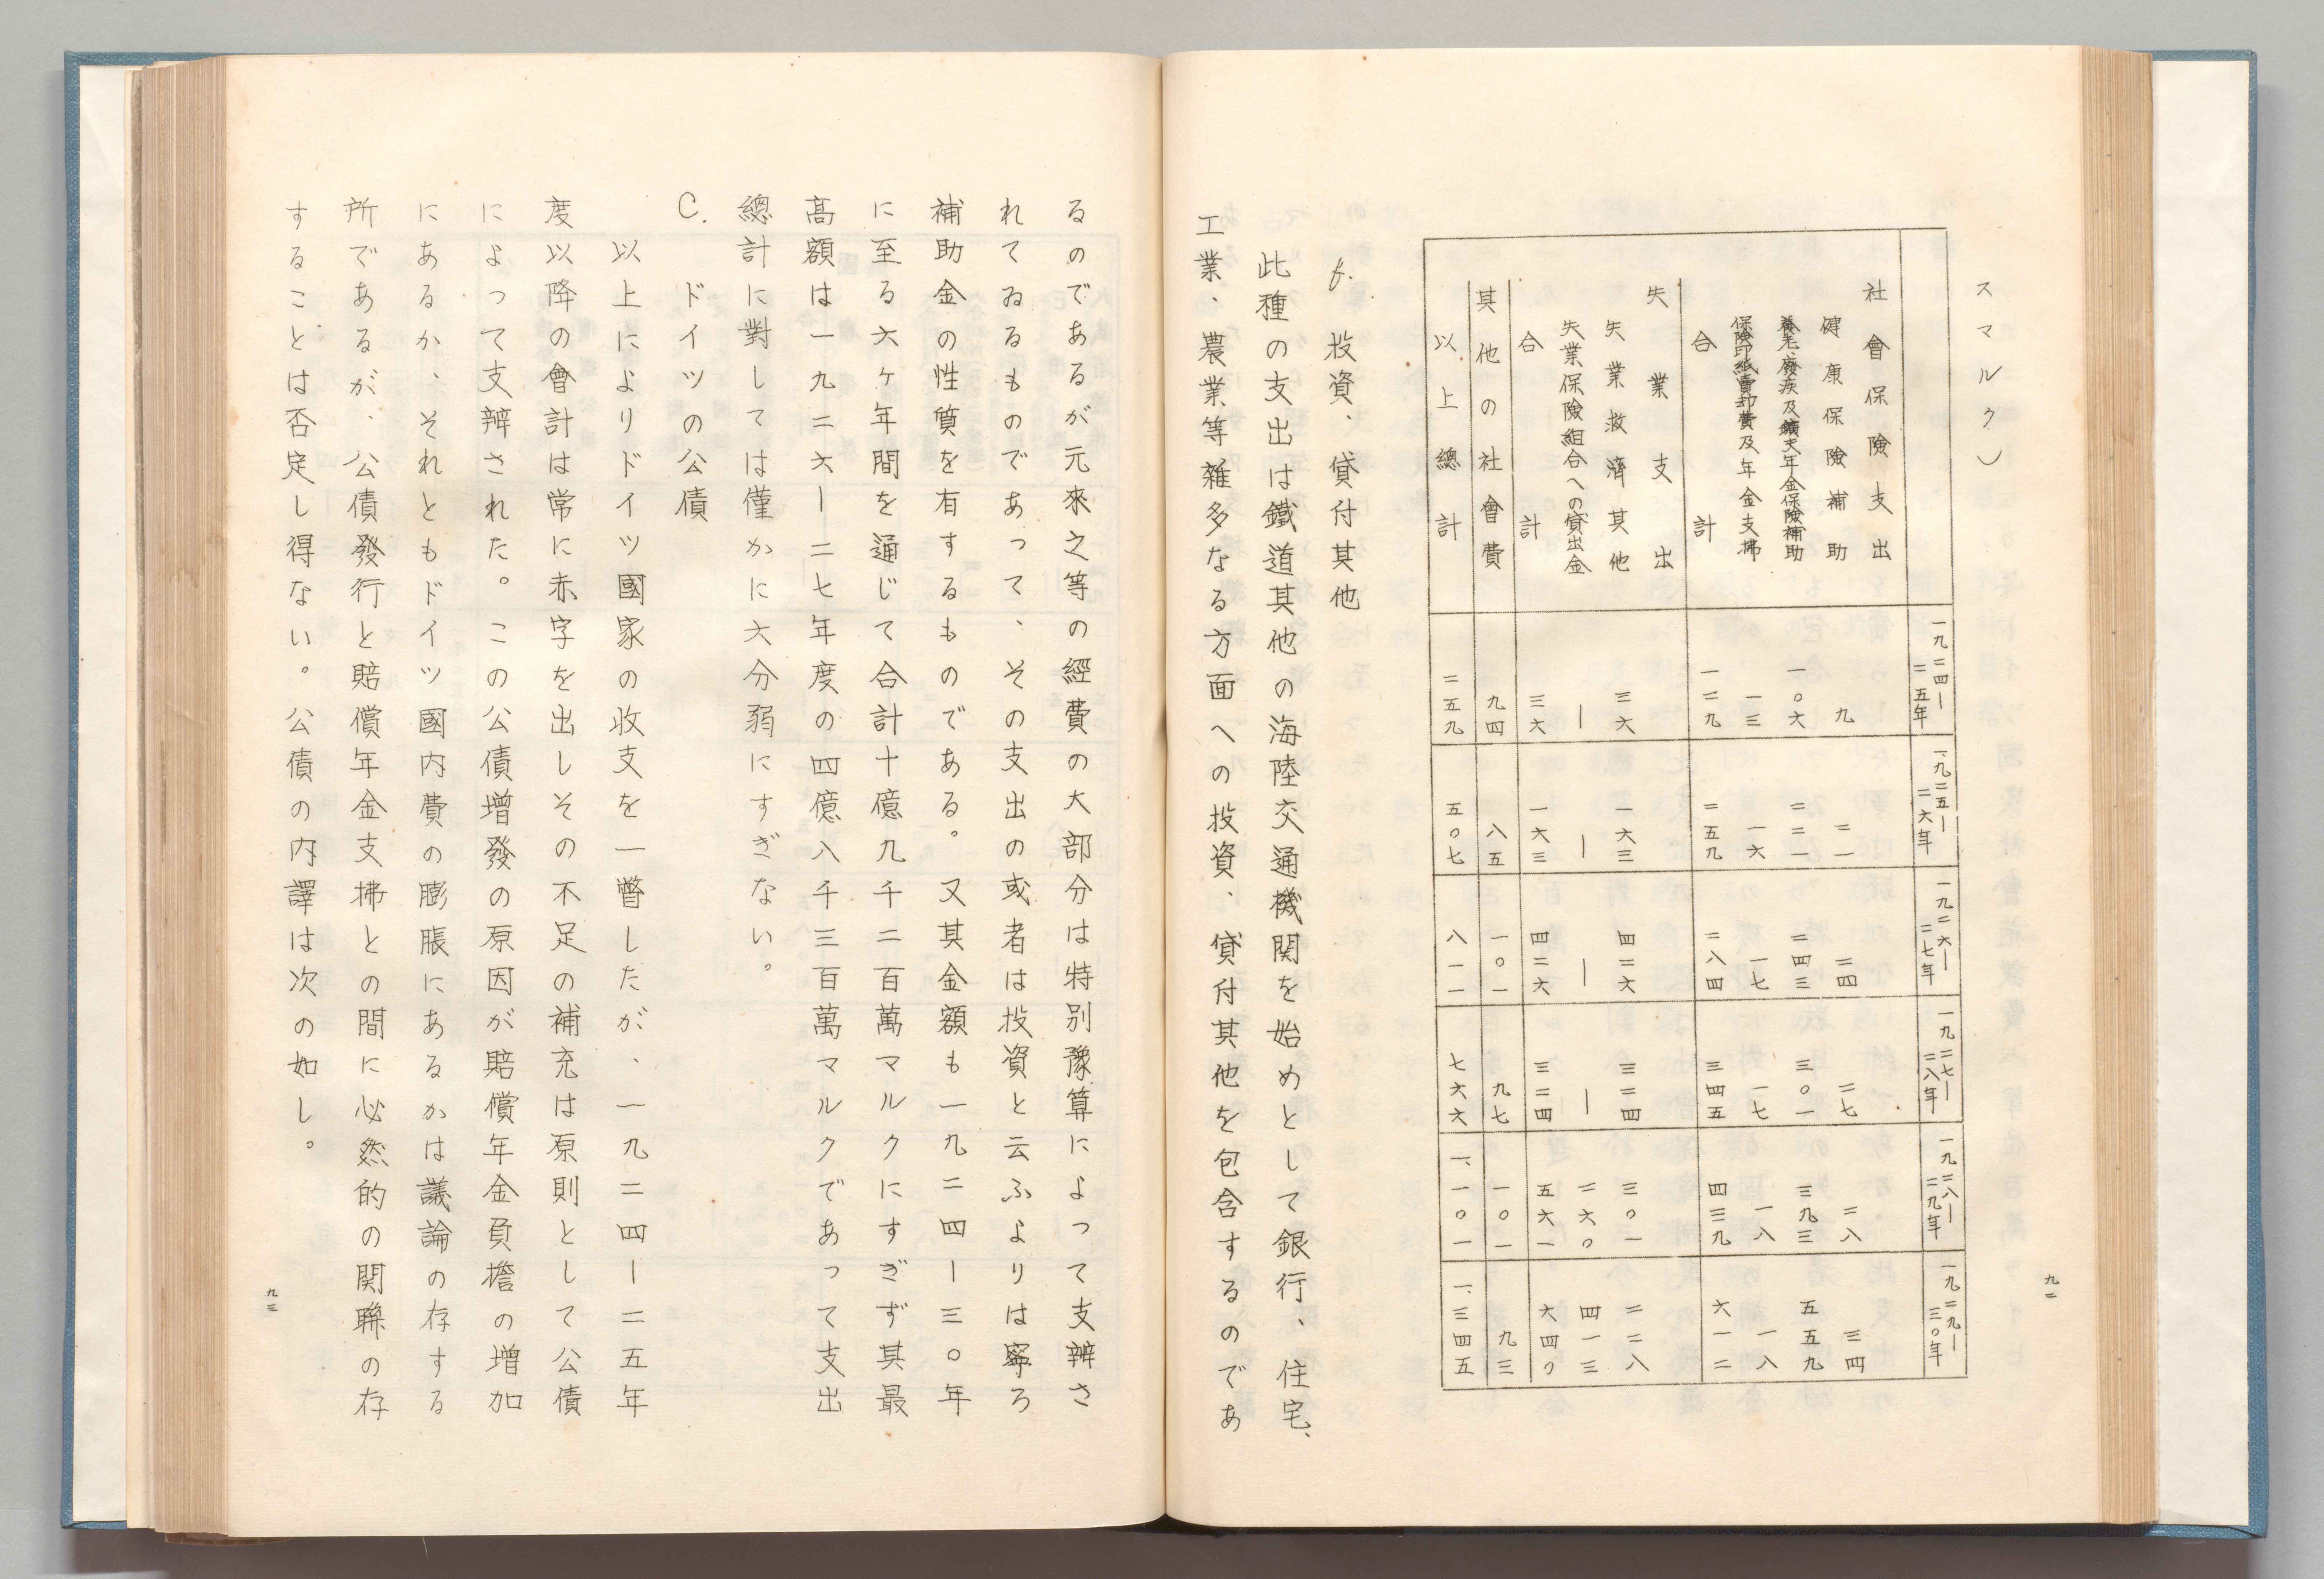 スマルク)
一九二四―二五年 一九二五―二六年 一九二六―二七年 一九二七―二八年 一九二八―二九年 一九二九―三〇年
社會保險支出
健康保險補助 九 二一 二四 二七 二八 三四
養老、廢疾及鑛夫年金保險補助 一〇六 二二一 二四三 三〇一 三九三 五五九
保險印紙賣却費及年金支拂 一三 一六 一七 一七 一八 一八
合計 一二九 二五九 二八四 三四五 四三九 六一二
失業支出
失業救濟其他 三六 一六三 四二六 三二四 三〇一 二二八
失業保險組合への貸出金 ― ― ― ― 二六〇 四一三
合計 三六 一六三 四二六 三二四 五六一 六四〇
其他の社會費 九四 八五 一〇一 九七 一〇一 九三
以上總計 二五九 五〇七 八一一 七六六 一、一〇一 一、三四五
f. 投資、貸付其他
此種の支出は鐵道其他の海陸交通機関を始めとして銀行、住宅、
工業、農業等雜多なる方面への投資、貸付其他を包含するのであ
九二
るのであるが元來之等の經費の大部分は特別豫算によって支辨さ
れてゐるものであって、その支出の或者は投資と云ふよりは寧ろ
補助金の性質を有するものである。又其金額も一九二四―三〇年
に至る六ヶ年間を通じて合計十億九千二百萬マルクにすぎず其最
高額は一九二六―二七年度の四億八千三百萬マルクであって支出
總計に對しては僅かに大分弱にすぎない。
C. ドイツの公債
以上によりドイツ國家の收支を一瞥したが、一九二四―二五年
度以降の會計は常に赤字を出しその不足の補充は原則として公債
によって支辨された。この公債増發の原因が賠償年金負擔の増加
にあるか、それともドイツ國内費の膨脹にあるかは議論の存する
所であるが、公債發行と賠償年金支拂との間に必然的の関聯の存
することは否定し得ない。公債の内譯は次の如し。
九三